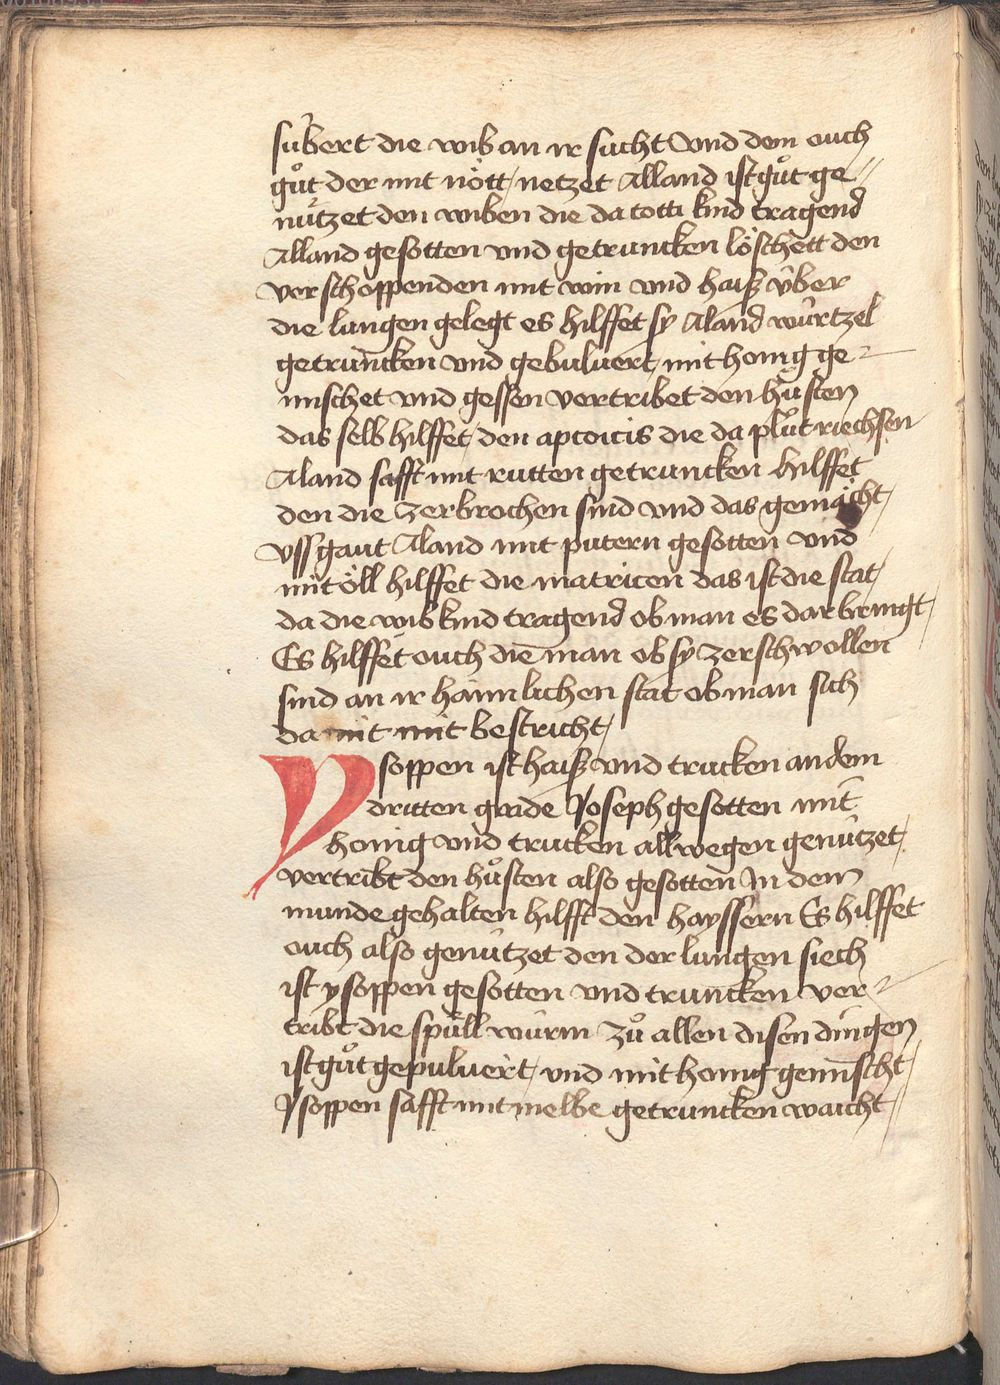 sübert die wib an ir sucht vnd dem ouch
gůt der mit nött / netzet Alland ist gůt ge⸗
nützet den wiben die da totti kind tragend
Alland gesotten vnd getruncken löschett den
verschoppenden mit win vnd haiß über
die lungen gelegt es hilffet sy Aland würtzel
getruncken vnd gebuluert / mit honig ge⸗
mischet vnd gessen vertribet den hůsten
das selb hilffet / den aptoicis die da plůt riechsen
Aland safft mit rutten getruncken hilffet
den die zerbrochen sind vnd das gemächt /
vss gaut Aland mit putern gesotten vnd
mit öll hilffet die matricen das ist die stat /
da die wib kind tragend ob man es dar bringt /
Es hilffet ouch die man ob sy zerschwollen
sind an ir haimlichen stat ob man sich
da mit mit bestricht /
Ysoppen ist haiß vnd trucken an dem
dritten grade Joseph gesotten mit
honig vnd trucken allwegen genützet /
vertribt den hůsten also gesotten In dem
munde gehalten hilfft den hayssern Es hilffet
ouch also genützet den der lungen siech
ist ysoppen gesotten vnd truncken ver⸗
tribt die spůll würm zů allen disen dingen
ist gůt gepuluert / vnd mit honig gemischt /
Ysoppen safft mit melbe getruncken waicht /